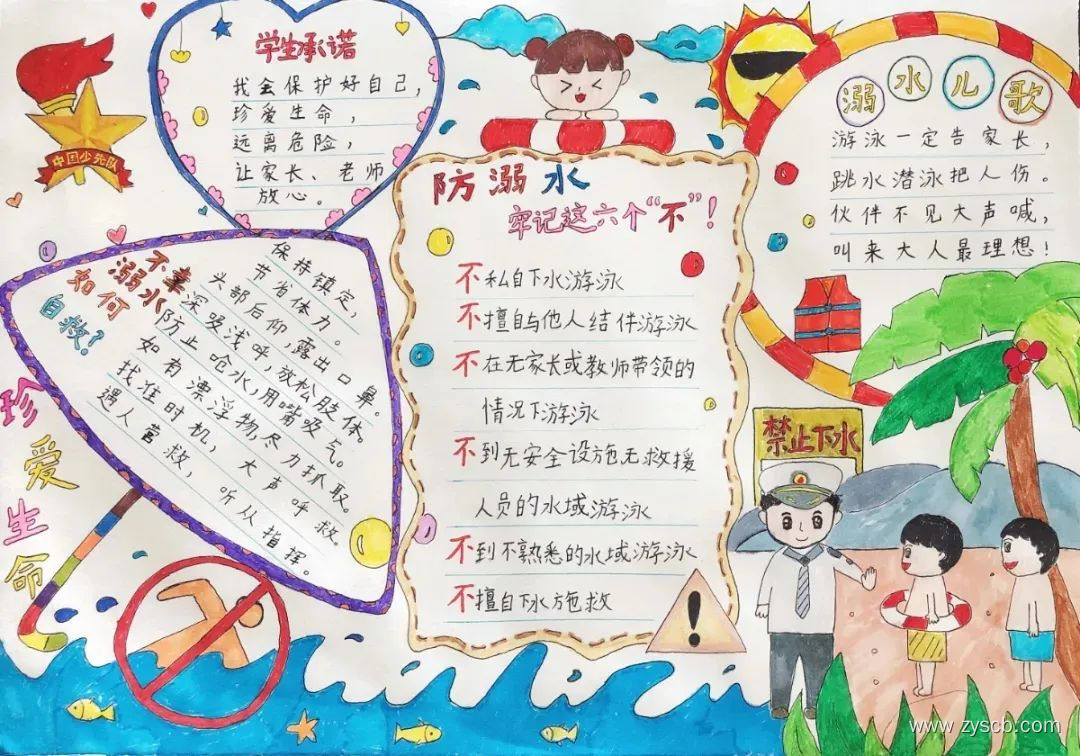 学生承诺
我会保护好自己，
珍爱生命，
远离危险，
让家长、老师
放心。
中国少先队
溺水儿歌
游泳一定告家长，
跳水潜泳把人伤。
伙伴不见大声喊，
叫来大人最理想！
防溺水
牢记这六个“不”！
不私自下水游泳
不擅自与他人结伴游泳
不在无家长或教师带领的
情况下游泳
不到无安全设施无救援
人员的水域游泳
不到不熟悉的水域游泳
不擅自下水施救
不幸溺水
如何
自救？
保持镇定，
节省体力。
头部后仰，露出口鼻。
深吸浅呼，放松肢体。
防止呛水，用嘴吸气。
如有漂浮物，尽力抓取。
找准时机，大声呼救。
遇人营救，听从指挥。
珍爱生命
禁止下水
www.zyscb.com